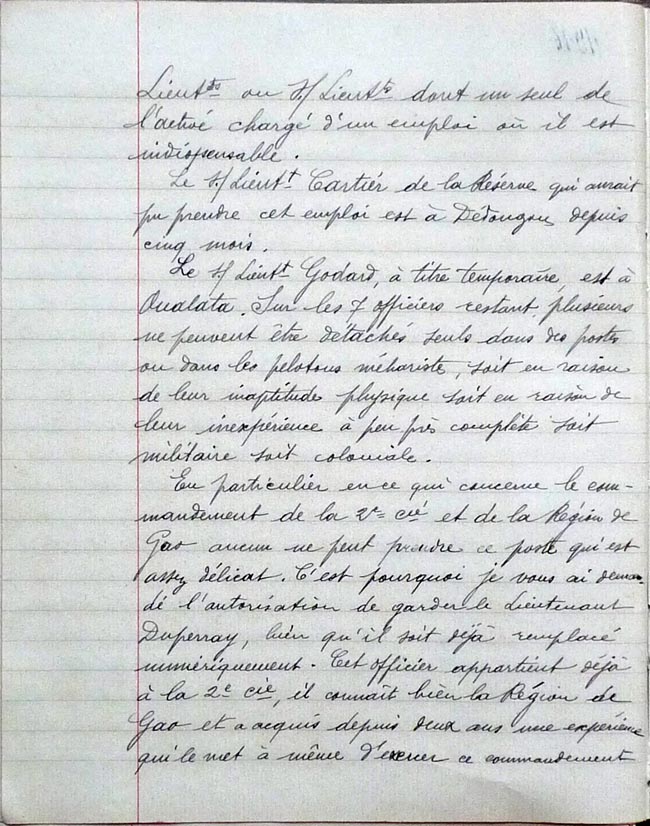 Lieutts ou S/Lieutts dont un seul de
l'activé chargé d'un emploi où il est
indispensable.
Le S/Lieutt Cartier de la Réserve qui aurait
pu prendre cet emploi est à Dédougou depuis
cinq mois.
Le S/Lieutt Godard, à titre temporaire, est à
Oualata. Sur les 7 officiers restant, plusieurs
ne peuvent être détachés seuls dans des postes
ou dans les pelotons méhariste, soit en raison
de leur inaptitude physique soit en raison de
leur inexpérience à peu près complète soit
militaire soit coloniale.
En particulier en ce qui concerne le com-
mandement de la 2e cie et de la Région de
Gao aucun ne peut prendre ce poste qui est
assez délicat. C'est pourquoi je vous ai deman-
dé l'autorisation de garder le Lieutenant
Duperray, bien qu'il soit déjà remplacé
numériquement. Cet officier appartient déjà
à la 2e cie, il connaît bien la Région de
Gao et a acquis depuis deux ans une expérience
qui le met à même d'exercer ce commandement